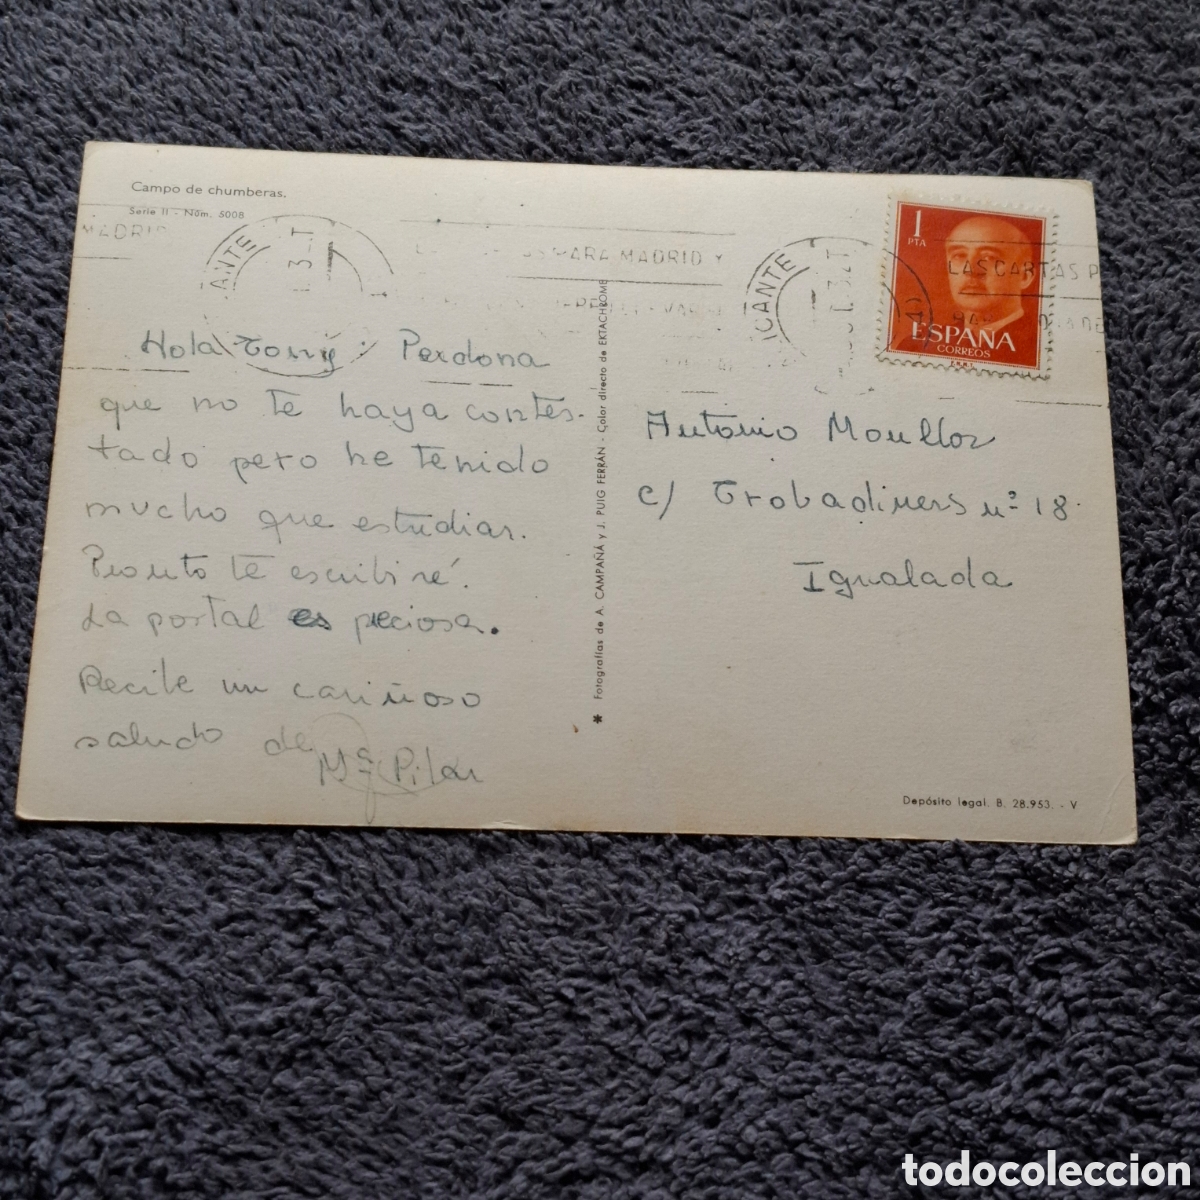 Campo de chumberas.
Serie II - Núm. 5008
MADRID
ANTE
3 - T
PARA MADRID Y
ICANTE
1
PTA
LAS CARTAS P
ESPAÑA
CORREOS
Hola Tony: Perdona
que no te haya contes-
tado pero he tenido
mucho que estudiar.
Pronto te escribiré.
La postal es preciosa.
Recibe un cariñoso
saludo de
Mª Pilar
* Fotografías de A. CAMPAÑÁ y J. PUIG FERRÁN - Color directo de EKTACHROME
Antonio Moullor
c/ Trobadiners nº 18
Igualada
Depósito legal. B. 28.953. - V
todocoleccion